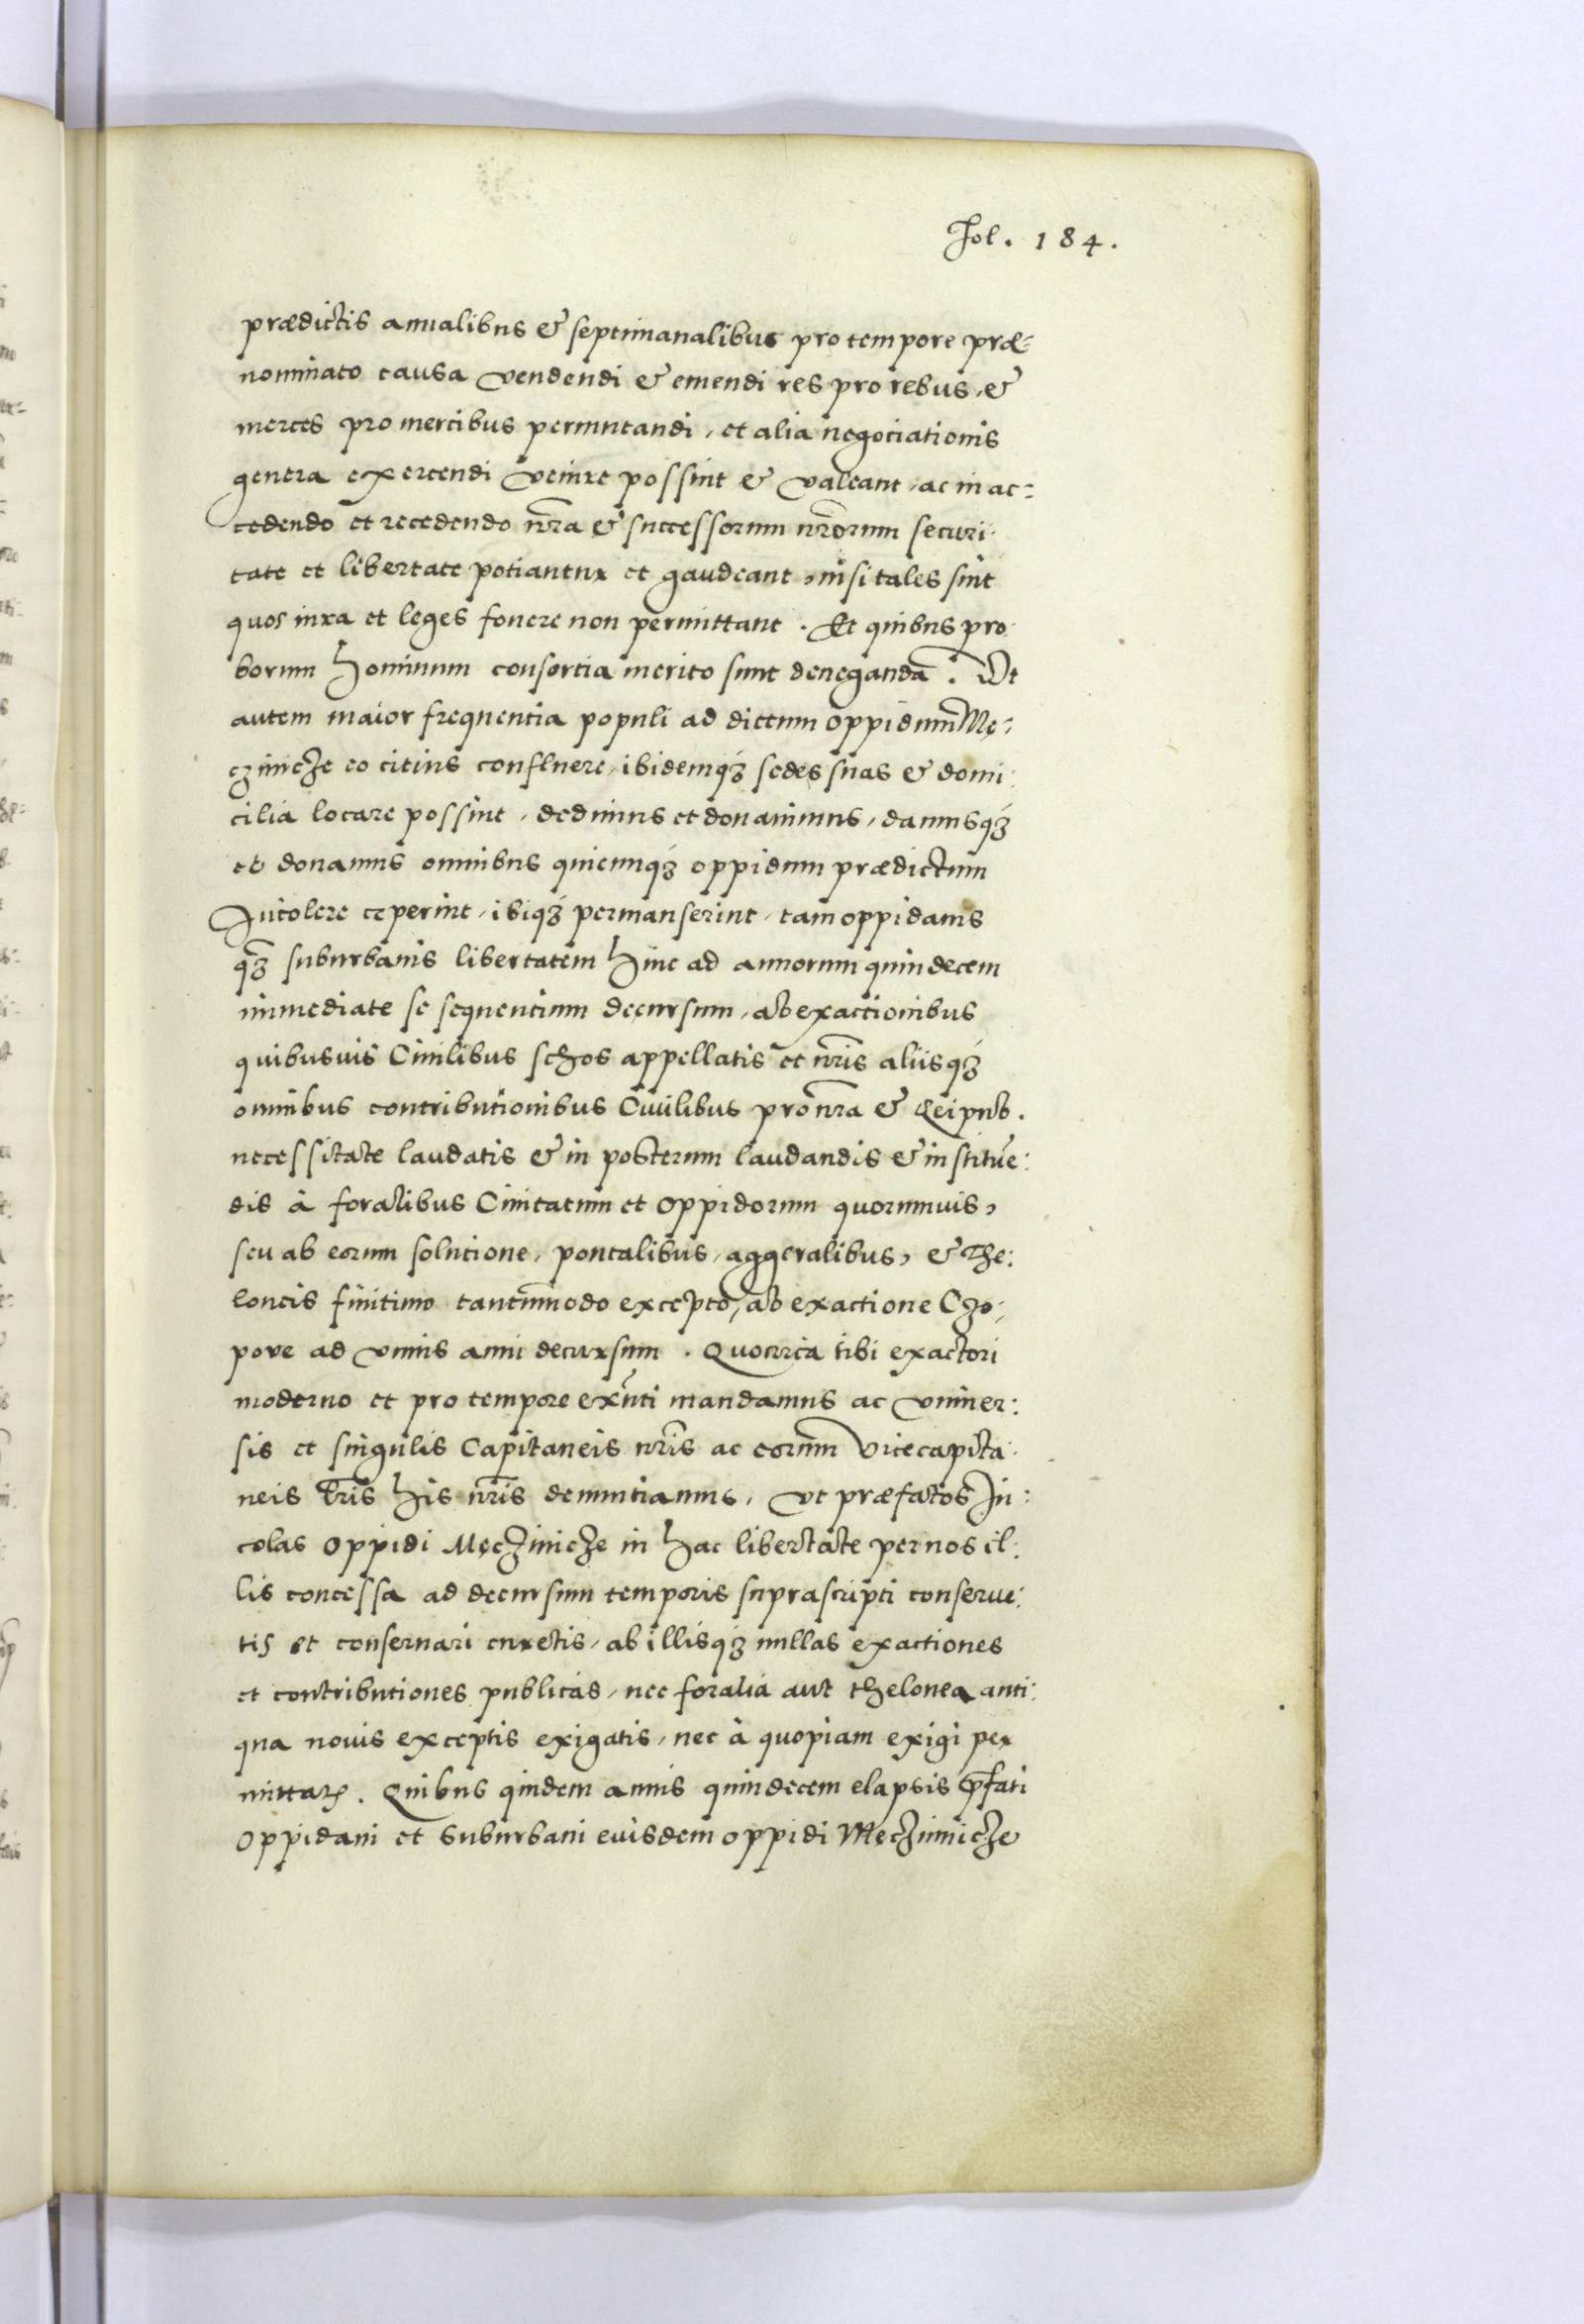 Fol. 184.
prædictis annalibus & septimanalibus pro tempore præ-
nominato causa vendendi & emendi res pro rebus, &
merces pro mercibus permutandi, et alia negociationis
genera exercendi venire possint & valeant, ac in ac:
cedendo et recedendo nr̃a & successorum nr̃orum securi:
tate et libertate potiantur et gaudeant, nisi tales sint
quos iura et leges fouere non permittant. Et quibus pro:
borum hominum consortia merito sunt deneganda. Vt
autem maior frequentia populi ad dictum oppidum Mę:
czinicze eo citius confluere, ibidemq́ȝ sedes suas & domi:
cilia locare possint, dedimus et donauimus, damusq́ȝ
et donamus omnibus quicunq́ȝ oppidum prædictum
Incolere cęperint, ibiq́ȝ permanserint, tam oppidanis
q̃ȝ suburbanis libertatem hinc ad annorum quindecem
immediate se sequentium decursum, ab exactionibus
quibusuis Ciuilibus schos appellatis et nr̃is aliisq́ȝ
omnibus contributionibus Ciuilibus pro nr̃a & Reipub.
necessitate laudatis & in posterum laudandis & institue᷄:
dis à foralibus Ciuitatum et Oppidorum quorumuis,
seu ab eorum solutione, pontalibus, aggeralibus, & The:
loneis finitimo tantum̃modo excepto, ab exactione Czo:
powe ad vnius anni decursum. Quocirca tibi exactori
moderno et pro tempore exñti mandamus ac vniuer:
sis et singulis Capitaneis nr̃is ac eorum Vicecapita:
neis lr̃is his nr̃is denuntiamus, vt præfatos In:
colas Oppidi Męczinicze in hac libertate per nos il:
lis concessa ad decursum temporis suprascripti conserue:
tis et conseruari curetis, ab illisq́ȝ nullas exactiones
et contributiones publicas, nec foralia aut thelonea anti:
qua nouis exceptis exigatis, nec à quopiam exigi per
mittatꝭ. Quibus quidem annis quindecem elapsis p̃fati
Oppidani et suburbani euisdem oppidi Męczinicze